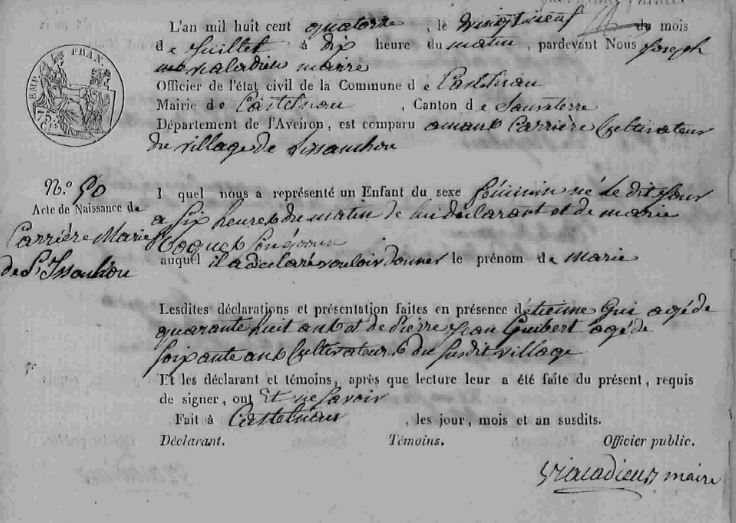 L'an mil huit cent quatorze, le vingt neuf du mois
de Juillet à dix heure du matin, pardevant Nous Joseph
maire
Officier de l'état civil de la Commune de Castelnau
Mairie de Castelnau, Canton de Sauveterre
Département de l'Aveiron, est comparu amans Carrière Cultivateur
du village de
EMP. FRAN.
N.º 50
Acte de Naissance de
Carrière Marie
de
I quel nous a représenté un Enfant du sexe féminin né le dit jour
a six heures du matin de lui déclarant et de marie
auquel il a déclaré vouloir donner le prénom de marie
Lesdites déclarations et présentation faites en présence d'étienne Gui agé de
quarante huit ans et de Pierre Jean Guibert agé de
soixante ans Cultivateurs du susdit village
Et les déclarant et témoins, après que lecture leur a été faite du présent, requis
de signer, ont dit ne savoir
Fait à Castelnau, les jour, mois et an susdits.
Déclarant. Témoins. Officier public.
maire